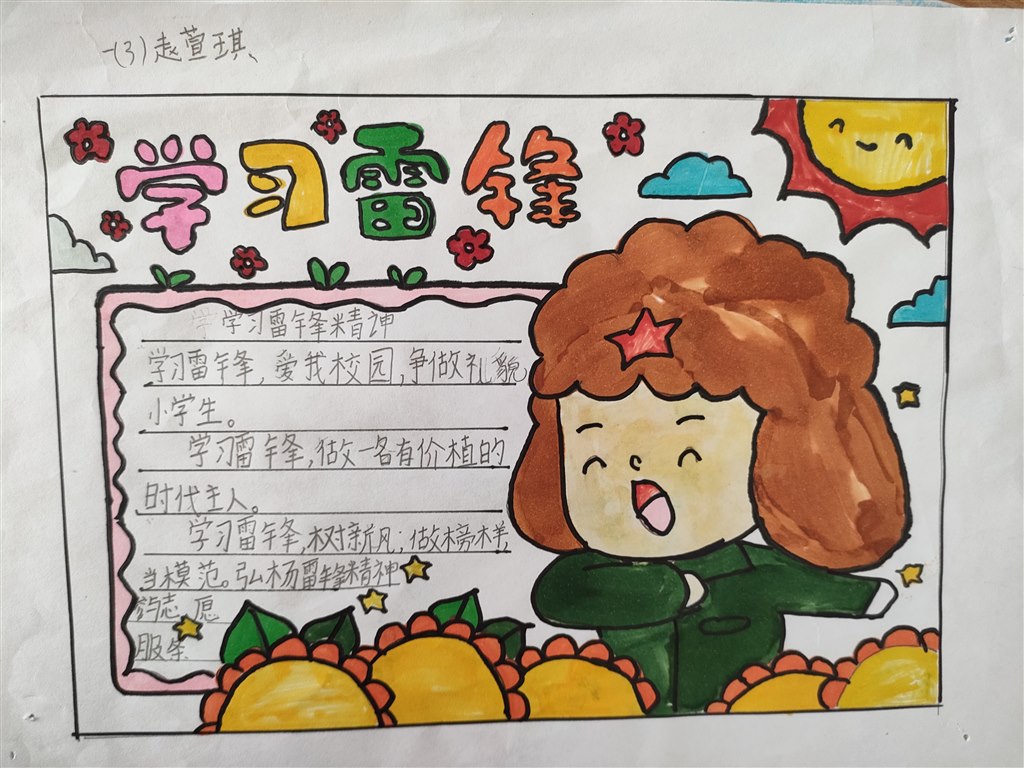 一(3)赵萱琪
学习雷锋
学学习雷锋精神
学习雷锋,爱我校园,争做礼貌
小学生。
学习雷锋,做一名有价植的
时代主人。
学习雷锋,树新风;做榜样,
当模范。弘杨雷锋精神
参与志愿
服务